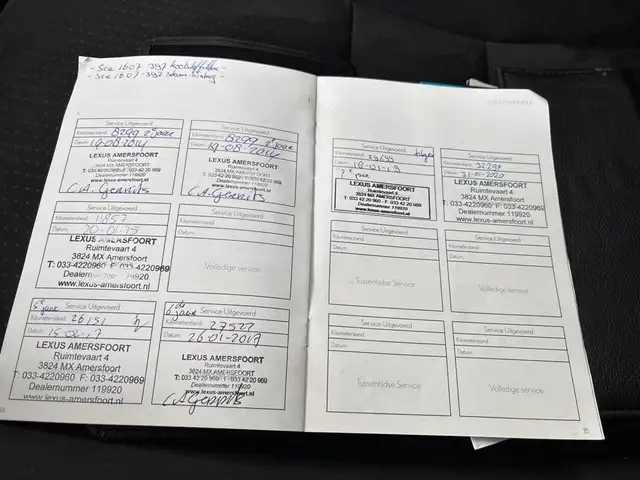 - Sca 1607-397
- Sca 1607-397
Service Uitgevoerd
Kilometerstand: 8299 2e jaar
Datum: 19-08-2014
LEXUS AMERSFOORT
Ruimtevaart 4
3824 MX Amersfoort
T: 033-42 20 960 F: 033 42 20 969
Dealernummer 119920
www.lexus-amersfoort.nl
C.A. Gerrits
Service Uitgevoerd
Kilometerstand: 8299 2e jaar
Datum: 19-08-2014
LEXUS AMERSFOORT
Ruimtevaart 4
3824 MX Amersfoort
T: 033-42 20 960 F: 033 42 20 969
Dealernummer 119920
www.lexus-amersfoort.nl
C.A. Gerrits
Service Uitgevoerd
Kilometerstand: 11857
Datum: 20-01-15
LEXUS AMERSFOORT
Ruimtevaart 4
3824 MX Amersfoort
T: 033-4220960 F: 033-4220969
Dealernummer 119920
www.lexus-amersfoort.nl
Service Uitgevoerd
Kilometerstand:
Datum:
Volledige service
5e jaar
Service Uitgevoerd
Kilometerstand: 26151
Datum:
LEXUS AMERSFOORT
Ruimtevaart 4
3824 MX Amersfoort
T: 033-4220960 F: 033-4220969
Dealernummer 119920
www.lexus-amersfoort.nl
6de jaar
Service Uitgevoerd
Kilometerstand: 27527
Datum: 26-01-2017
LEXUS AMERSFOORT
Ruimtevaart 4
3824 MX Amersfoort
T: 033-42 20 960 F: 033 42 20 969
Dealernummer 119920
www.lexus-amersfoort.nl
C.A. Gerrits
Service Uitgevoerd
Kilometerstand:
Datum: 18-01-19
jaar
LEXUS AMERSFOORT
Ruimtevaart 4
3824 MX Amersfoort
www.lexus-amersfoort.nl
Service Uitgevoerd
Kilometerstand: 32797
Datum: 31-01-2020
LEXUS AMERSFOORT
Ruimtevaart 4
3824 MX Amersfoort
T: 033-42 20 960 F: 033 42 20 969
Dealernummer 119920
www.lexus-amersfoort.nl
Service Uitgevoerd
Kilometerstand:
Datum:
Tussentijdse Service
Service Uitgevoerd
Kilometerstand:
Datum:
Volledige service
Service Uitgevoerd
Kilometerstand:
Datum:
Tussentijdse Service
Service Uitgevoerd
Kilometerstand:
Datum:
Volledige service